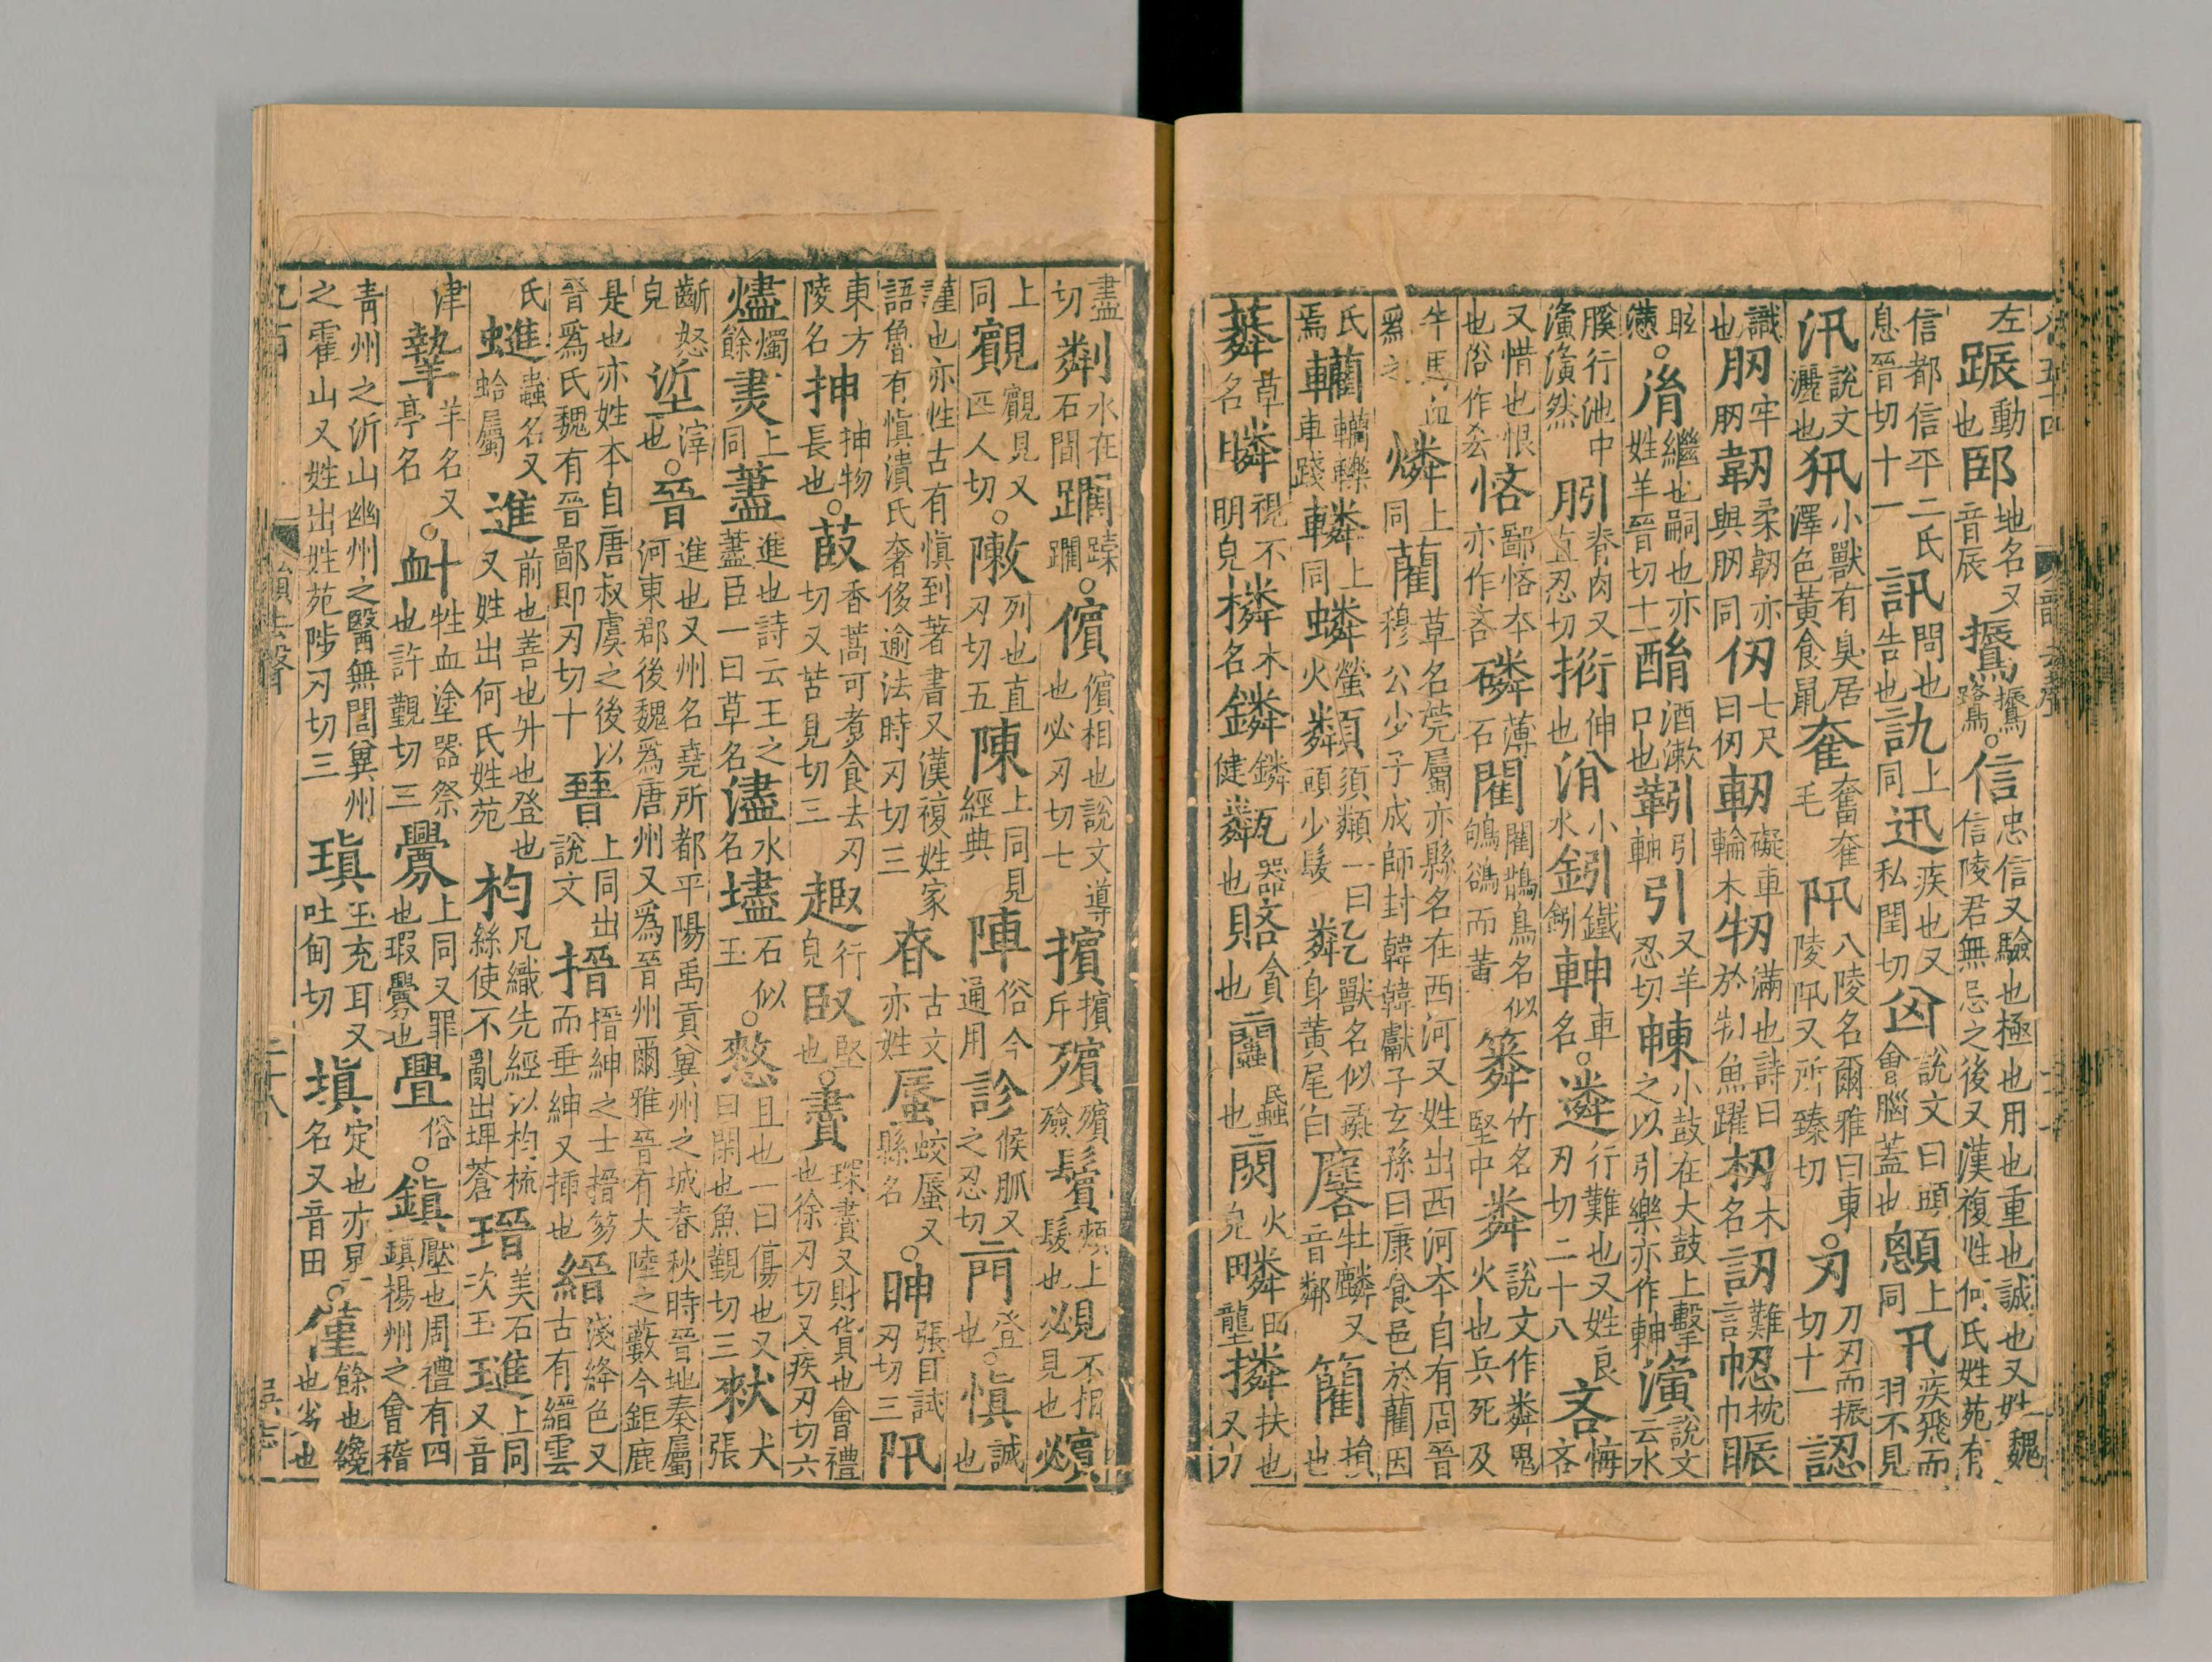 左 䟴 動也 𨛌 地名又音辰 鷐 振鷺 ○信 忠信又驗也極也用也重也誠也又姓魏信陵君無忌之後又漢複姓何氏姓苑有
信都信平二氏息晉切十一 訊 問也告也 訙 上同 迅 疾也又私閏切 囟 說文曰頭會腦蓋也 顖 上同 卂 疾飛而羽不見
汛 說文灑也 㹪 小獸有臭居澤色黃食鼠 奞 奮奞毛 阠 八陵名爾雅曰東陵阠又所臻切 ○刃 刀刃而振切十一 認
識也 肕 牢肕 韌 柔韌亦與肕同 仞 七尺曰仞 軔 礙車輪木 牣 滿也詩曰於牣魚躍 杒 木名 訒 難言 㡇 枕巾 䀼
眩懣 ○胤 繼也嗣也亦姓羊晉切十一 酳 酒漱口也 靷 引軸 引 又羊忍切 朄 小鼓在大鼓上擊之以引樂亦作𩊏 濥 說文云水
脈行池中濥濥然 䏖 脊肉又直忍切 㧢 伸也 㳙 小水 鈏 鐵鈏 車名 ○遴 行難也又姓良刃切二十八 吝 悔吝
又惜也恨也俗作㖁 悋 鄙悋本亦作吝 磷 薄石 閵 閵鵲鳥名似鴝鵒而黃 䉮 竹名堅中 粦 說文作㷠鬼火也兵死及
牛馬血爲之 燐 上同 藺 草名莞屬亦縣名在西河又姓出西河本自有周晉穆公少子成師封韓韓獻子玄孫曰康食邑於藺因
氏焉 轥 轥轢車踐 轔 上同 螢火 須一曰頭少髮 獸名似彘身黃尾白 麐 牡麟又音鄰 損也
草名 瞵 視不明皃 橉 木名 鏻 鏻健 瓦器也 貪也 火皃 疄 田壟 撛 扶也又力
盡切 粼 水在石間 躪 蹂躪 ○儐 儐相也說文導也必刃切七 擯 擯斥 殯 殯殮 鬢 頰髮也 覕 不相見也 上同
覿 覿見又匹人切 ○敶 列也直刃切五 陳 上同見經典 陣 俗今通用 診 候脈又之忍切 登也 ○愼 誠也
謹也亦姓古有愼到著書又漢複姓家語魯有愼潰氏奢侈逾法時刃切三 古文亦姓 蜃 蛟蜃又縣名 ○眒 張目試刃切三 阠
東方陵名 抻 抻物長也 ○菣 香蒿可煮食去刃切又苦見切三 行皃 臤 堅也 ○賮 琛賮又財貨也會禮也徐刃切又疾刃切六
燼 燭餘 㶳 上同 藎 進也詩云王之藎臣一曰草名 濜 水名 璶 石似玉 ○憖 且也一曰傷也又曰閑也魚覲切三 猌 犬張
齗怒皃 垽 滓也 ○晉 進也又州名堯所都平陽禹貢冀州之城春秋時晉地秦屬河東郡後魏爲唐州又爲晉州爾雅晉有大陸之藪今鉅鹿
是也亦姓本自唐叔虞之後以晉爲氏魏有晉鄙即刃切十 晋 上同出說文 搢 搢紳之士搢笏而垂紳又插也 縉 淺絳色又古有縉雲
氏 蟲名又蛤屬 進 前也善也升也登也又姓出何氏姓苑 凡織先經以杼梳絲使不亂出埤蒼 瑨 美石次玉 璡 上同又音
津 羊名又亭名 ○衅 牲血塗器祭也許覲切三 釁 上同又罪也瑕釁也 舋 俗 ○鎭 壓也周禮有四鎭揚州之會稽
靑州之沂山幽州之醫無閭冀州之霍山又姓出姓苑陟刃切三 瑱 玉充耳又吐甸切 塡 定也亦星名又音田 ○僅 餘也纔也劣也